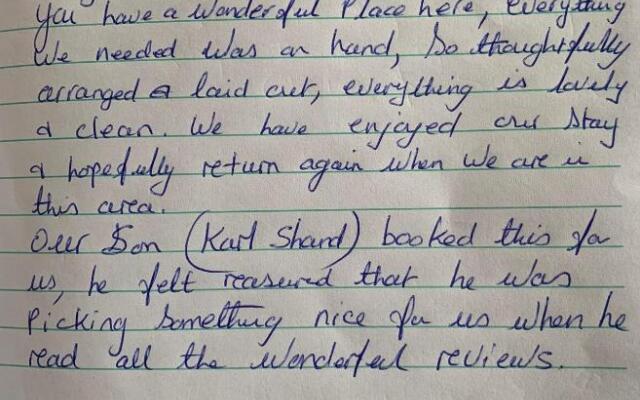 you have a wonderful Place here, everything
We needed was on hand, so thoughtfully
arranged & laid out, everything is lovely
& clean. We have enjoyed our stay
& hopefully return again when we are in
this area.
Our Son (Karl Shard) booked this for
us, he felt reasured that he was
Picking something nice for us when he
read all the wonderful reviews.